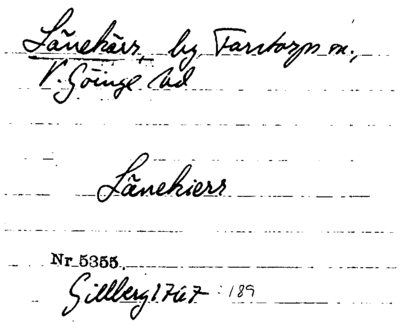 Lånekärr, by, Farstorps sn.,
V. Göinge hd
Lånekierr
Nr 5355.
Gillberg 1767 : 189